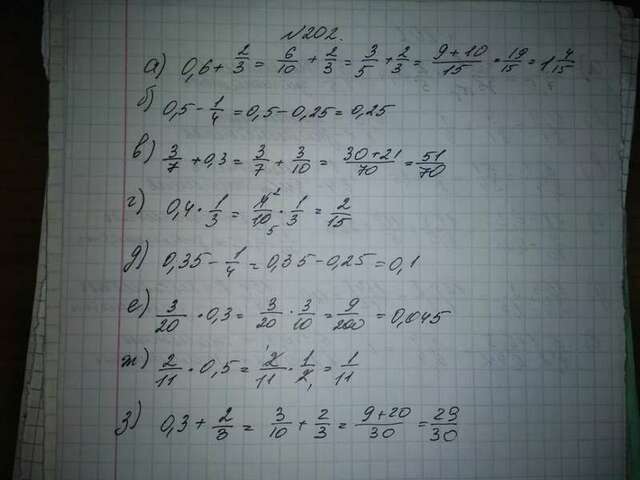 №202.
а) 0,6 + 2/3 = 6/10 + 2/3 = 3/5 + 2/3 = (9+10)/15 = 19/15 = 1 4/15
б) 0,5 - 1/4 = 0,5 - 0,25 = 0,25
в) 3/7 + 0,3 = 3/7 + 3/10 = (30+21)/70 = 51/70
г) 0,4 · 1/3 = 4²/10₅ · 1/3 = 2/15
д) 0,35 - 1/4 = 0,35 - 0,25 = 0,1
е) 3/20 · 0,3 = 3/20 · 3/10 = 9/200 = 0,045
ж) 2/11 · 0,5 = ¹2/11 · 1/2₁ = 1/11
з) 0,3 + 2/3 = 3/10 + 2/3 = (9+20)/30 = 29/30